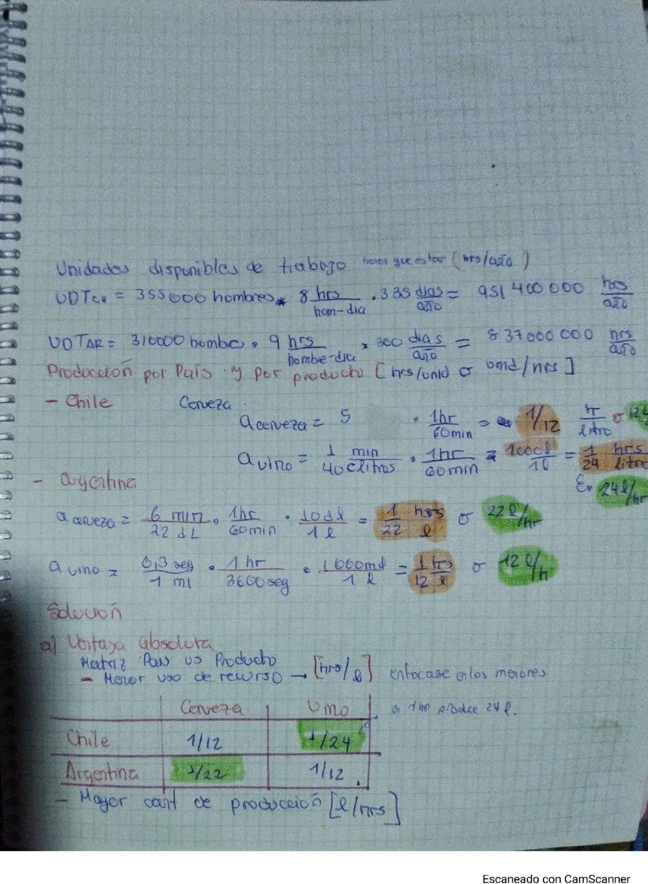 Unidades disponibles de trabajo tienen que estar (hrs/año)
UDTCH = 355000 hombres * 8 hrs/hom-dia . 335 dias/año = 951 400 000 hrs/año
UDTAR = 310000 hombre . 9 hrs/hombre-dia * 300 dias/año = 837000000 hrs/año
Producción por País y por producto [hrs/unid o unid/hrs]
- Chile Cerveza
a cerveza = 5 . 1hr/60min = 1/12 hr/litro o 12
a vino = 1 min/40 clitros . 1hr/60min * 100cl/1l = 1/24 hrs/litro
o 24 l/hr
- Argentina
a cerveza = 6 min/22 dL . 1hr/60min . 10dl/1l = 1/22 hrs/l o 22 l/hr
a vino = 0,3 seg/1 ml . 1 hr/3600seg . 1000ml/1 l = 1/12 hrs/l o 12 l/h
Solución
a) Ventaja absoluta
Matriz País vs Producto
- Menor uso de recurso → [hrs/l] enfocarse en los menores
Cerveza Vino en 1 hr produce 24 l.
Chile 1/12 1/24
Argentina 1/22 1/12
- Mayor cant de producción [l/hrs]
Escaneado con CamScanner